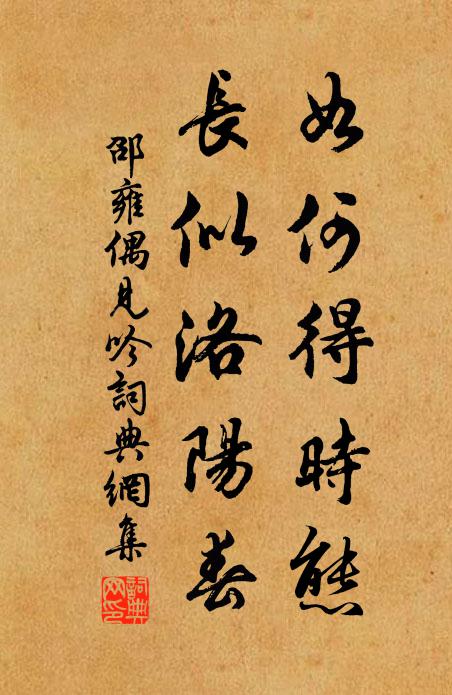 如何得時態
長似洛陽春
邵雍偶見吟詞典網集
詞典網印